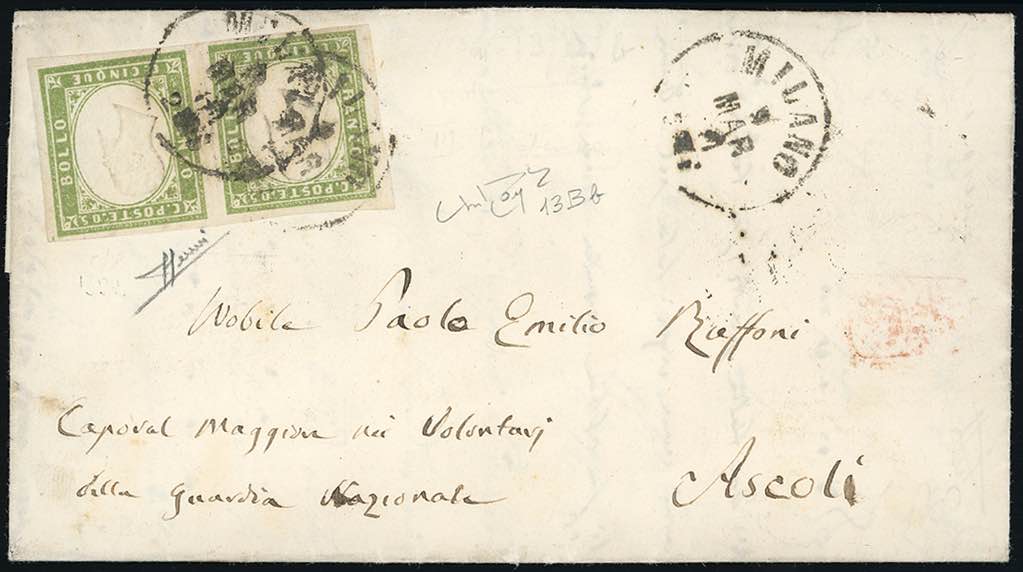 FRANCO BOLLO
C. POSTE. C. 5
C. CINQUE
BOLLO
C. POSTE. C. 5
C. CINQUE
MILANO
MAR
MILANO
MAR
13Bb
Nobile Paolo Emilio Riaffoni
Caporal Maggiore nei Volontarj
della Guardia Nazionale
Ascoli